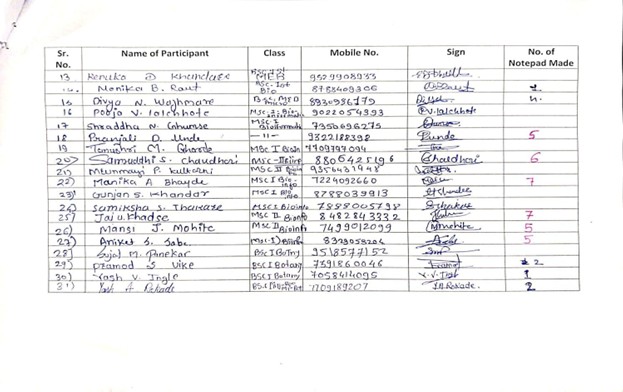 Sr. No. Name of Participant Class Mobile No. Sign No. of Notepad Made
13 Renuka D Khandare MEB 9529908933
14. Monika B. Raut Bio 8788409306
15 Divya N. Waghmare 8930986179 4.
16 Pooja V. lolchhote 9022054993 P.V. lolchhote
17 Shraddha N. Ghurse MSc-I Bioinformatic 7350696275
18 Pranjali D. Unde —11— 9322188398 Punde 5
19 Tanushri M. Ghorde MSc I Bioin 7709797094
20) Samruddhi S. chaudhari MSc-II Bioinfo 8806425196 Chaudhari 6
21) Mrunmayi P. kulkarni MSc II Bioin 9356431948
22) Manika A Bhoyde MSc I Bio-info 7224092660 7
23) Gunjan S. Khandar MSc I Bio 8788039913
24) Samiksha S. Thakare MSc I Bioinfo 7888005798 Sthakare
25) Jai u. Khadse MSc II Bioinfo 8482843332 7
26) Mansi J. Mohite MSc II Bioinfo 7499012099 Mmohite 5
27) Aniket S. Jabe MSc-I) Bioinfo 8329058206 5
28) Sujal M. Panekar BSc I Botny 9518577152
29) pramod S vike BSc I Botany 7391860046 2
30) Yash V. Ingle BSC I Botany 7058414095 Y.V. Ingle 1
31) Yash A Rokade BSc I 7709189207 Y.A. Rokade. 2